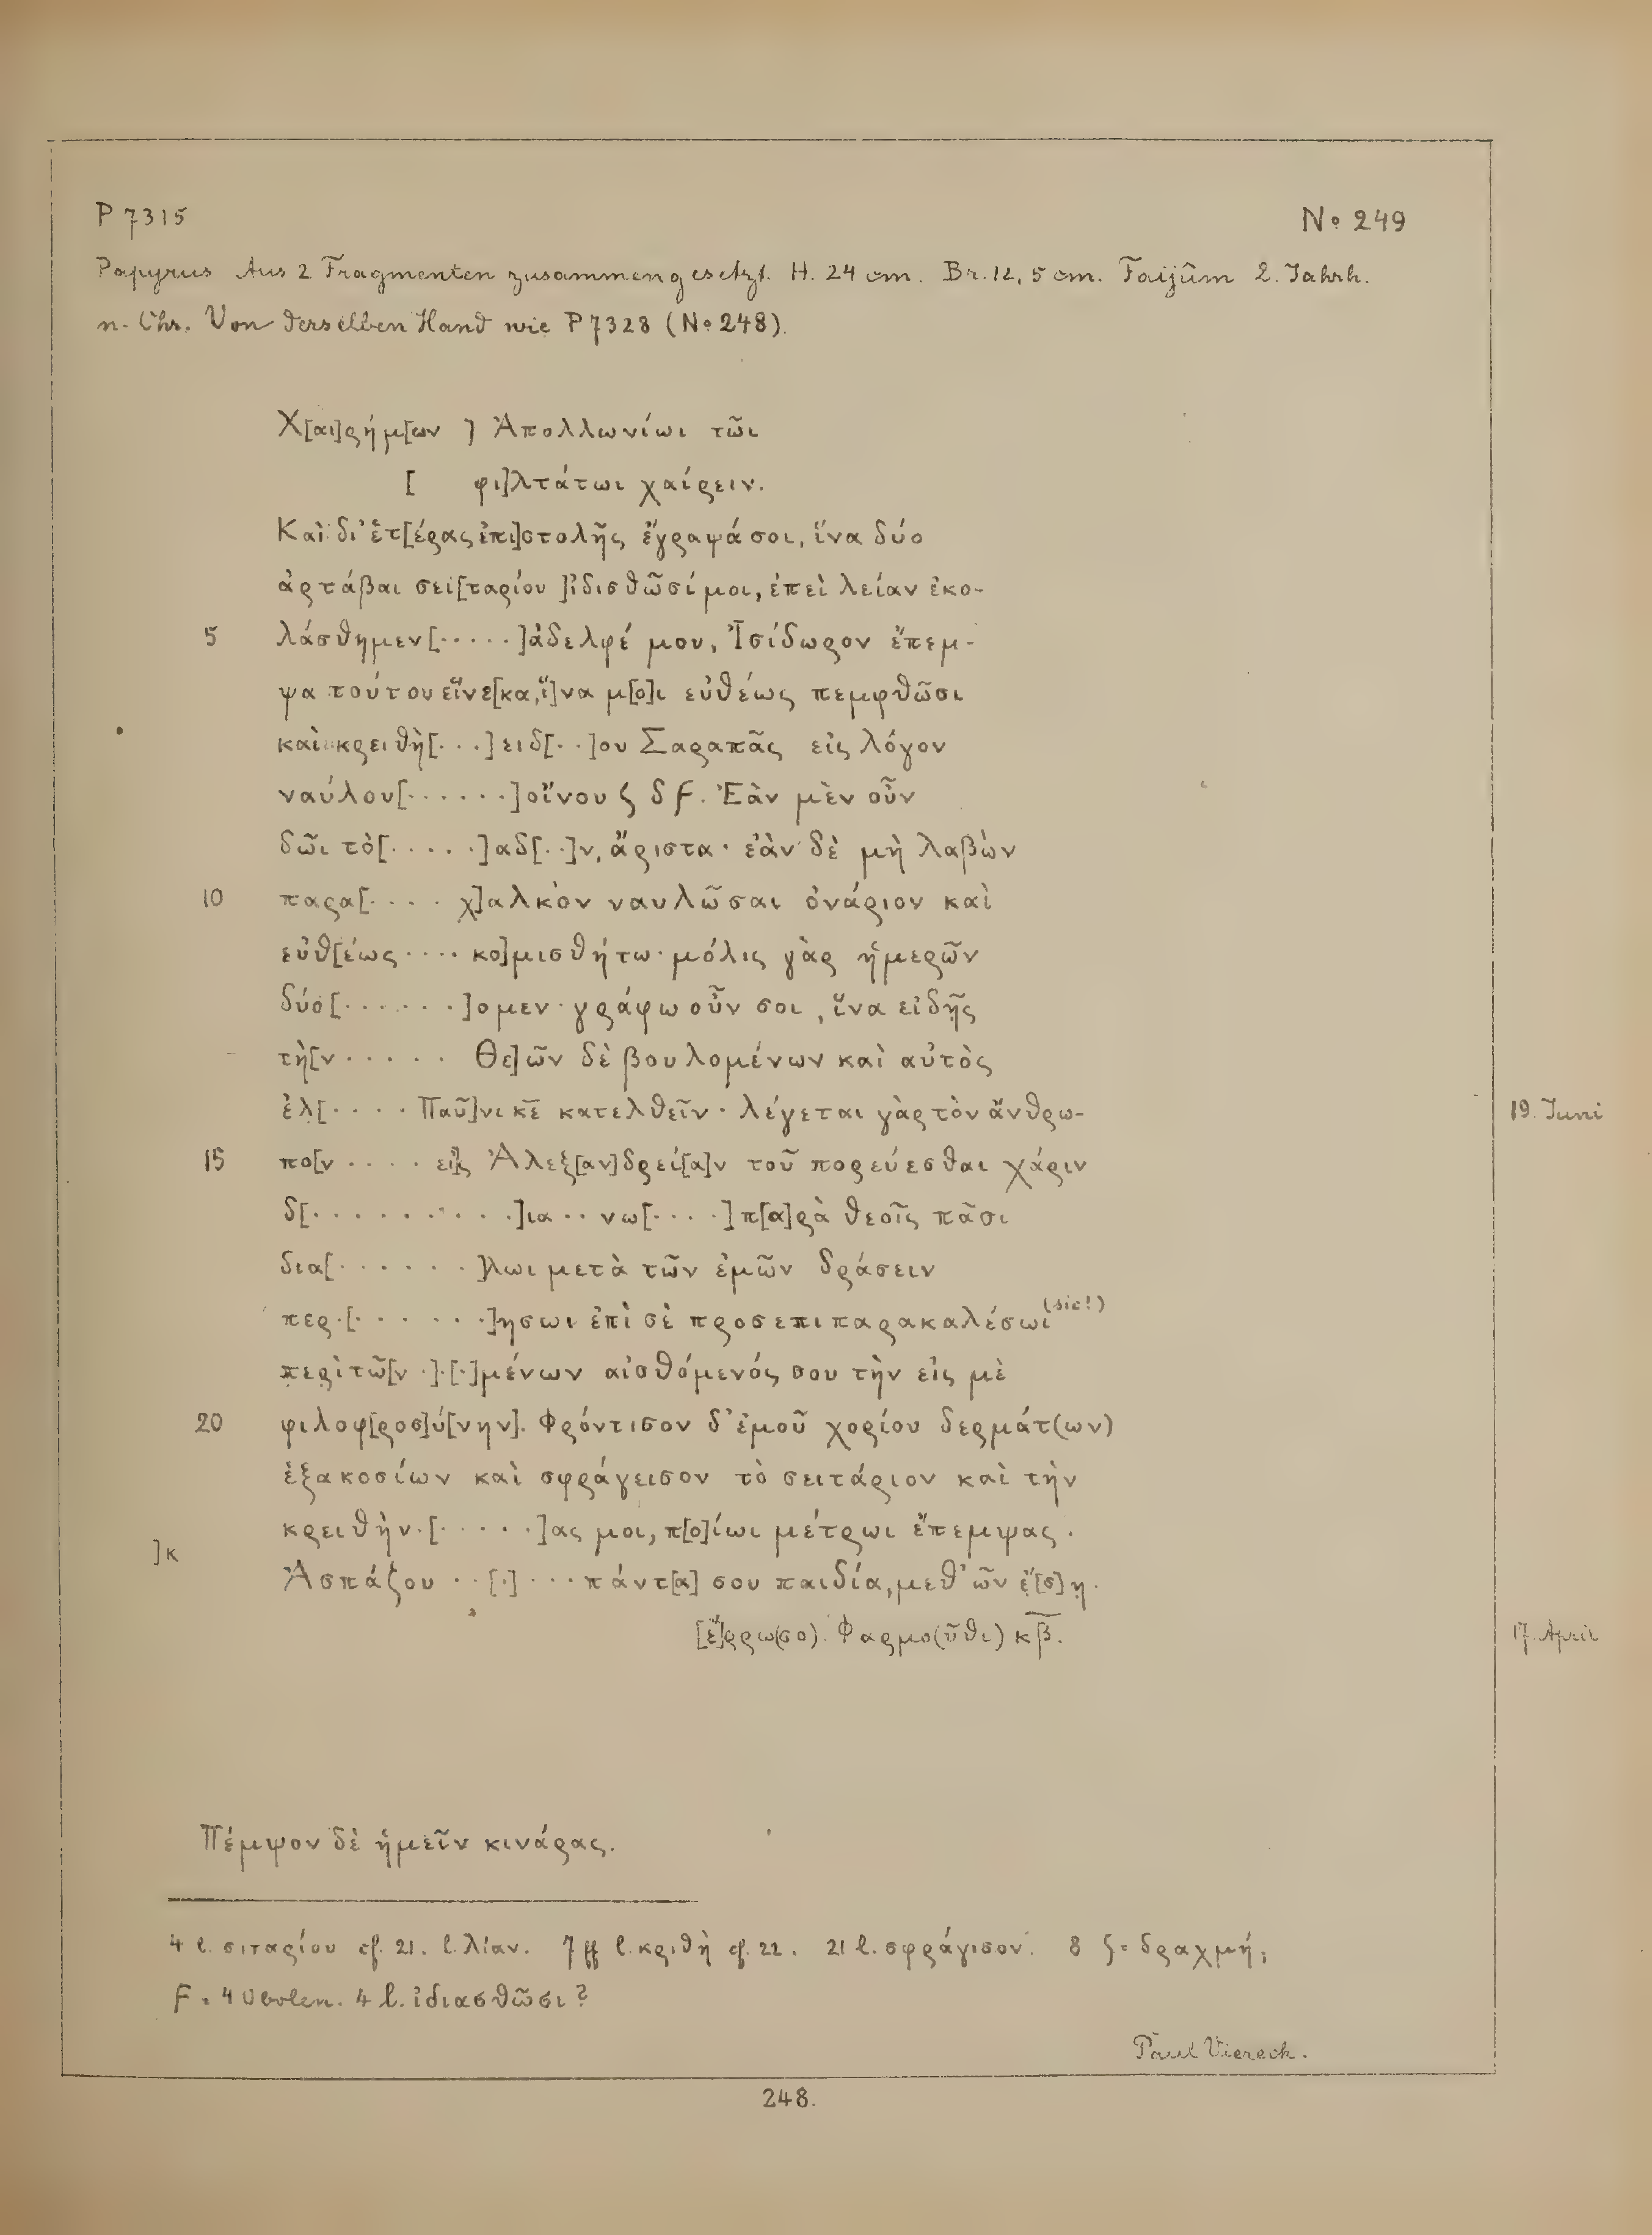 P 7315
No 249
Papyrus Aus 2 Fragmenten zusammengesetzt. H. 24 cm. Br. 12,5 cm. Faijûm 2. Jahrh.
n. Chr. Von derselben Hand wie P 7328 (No 248).
Χ[αι]ρήμ[ων ] Ἀπολλωνίωι τῶι
[ φι]λτάτωι χαίρειν.
Καὶ δι' ἑτ[έρας ἐπι]στολῆς ἔγραψά σοι, ἵνα δύο
ἀρτάβαι σει[ταρίου ]ἰδισθῶσί μοι, ἐπεὶ λείαν ἐκο-
5 λάσθημεν[·····]ἀδελφέ μου, Ἰσίδωρον ἔπεμ-
ψα τούτου εἵνε[κα, ἵ]να μ[ο]ι εὐθέως πεμφθῶσι
καὶ κρειθὴ[···]ειδ[··]ου Σαραπᾶς εἰς λόγον
ναύλου[······]οἴνου ϛ δ ϝ. Ἐὰν μὲν οὖν
δῶι τὸ[·····]αδ[··]ν, ἄριστα· ἐὰν δὲ μὴ λαβὼν
10 παρα[···· χ]αλκὸν ναυλῶσαι ὀνάριον καὶ
εὐθ[έως ···· κο]μισθήτω· μόλις γὰρ ἡμερῶν
δύο[·······]ομεν· γράφω οὖν σοι, ἵνα εἰδῇς
τὴ[ν ····· Θε]ῶν δὲ βουλομένων καὶ αὐτὸς
ἐλ[···· Παῦ]νι κ̅ε̅ κατελθεῖν· λέγεται γὰρ τὸν ἄνθρω-
19. Juni
15 πο[ν ···· εἰ]ς Ἀλεξ[αν]δρεί[α]ν τοῦ πορεύεσθαι χάριν
δ[··········]ια·· νω[····] π[α]ρὰ θεοῖς πᾶσι
δια[·······]λωι μετὰ τῶν ἐμῶν δράσειν
περ·[·······]ησωι ἐπὶ σὲ προσεπιπαρακαλέσωι (sic!)
περὶ τῶ[ν ·]·[·]μένων αἰσθόμενός σου τὴν εἰς μὲ
20 φιλοφ[ροσ]ύ[νην]. Φρόντισον δ' ἐμοῦ χορίου δερμάτ(ων)
ἑξακοσίων καὶ σφράγεισον τὸ σειτάριον καὶ τὴν
κρειθὴν·[·····]ας μοι, π[ο]ίωι μέτρωι ἔπεμψας.
]κ
Ἀσπάζου ··[·]··· πάντ[α] σου παιδία, μεθ' ὧν ἔ[σ]ῃ.
[ἔ]ρρω(σο). Φαρμο(ῦθι) κ̅β̅.
17. April
Πέμψον δὲ ἡμεῖν κινάρας.
4 l. σιταρίου cf. 21. l. λίαν. 7 ff l. κριθὴ cf. 22. 21 l. σφράγισον. 8 ϛ = δραχμή;
ϝ = 4 Obolen. 4 l. ἰδιασθῶσι?
Paul Viereck.
248.